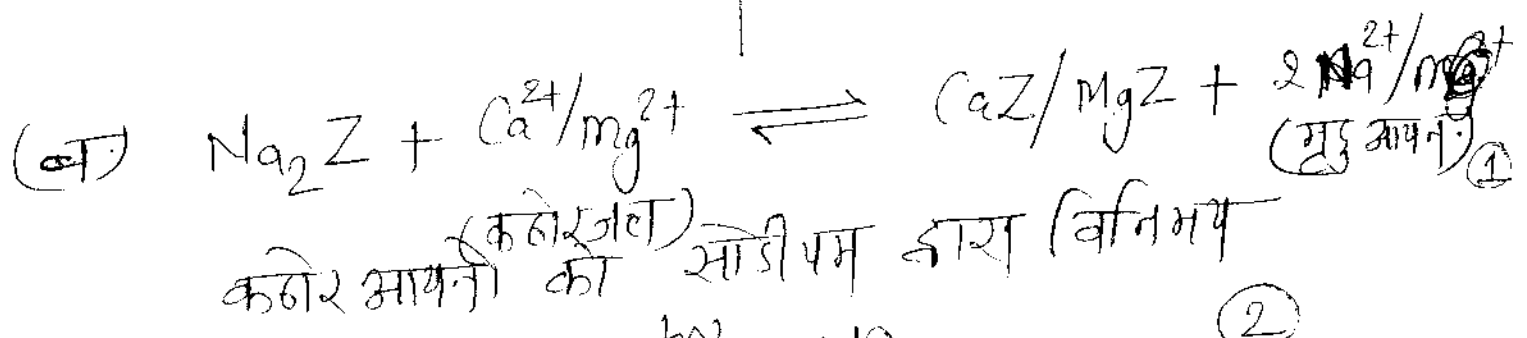 (ब) Na₂Z + Ca²⁺/mg²⁺ ⇌ CaZ/MgZ + 2Na²⁺/
(कठोर जल) (मृदु आयन) ①
कठोर आयनों को सोडीयम द्वारा विनिमय
②